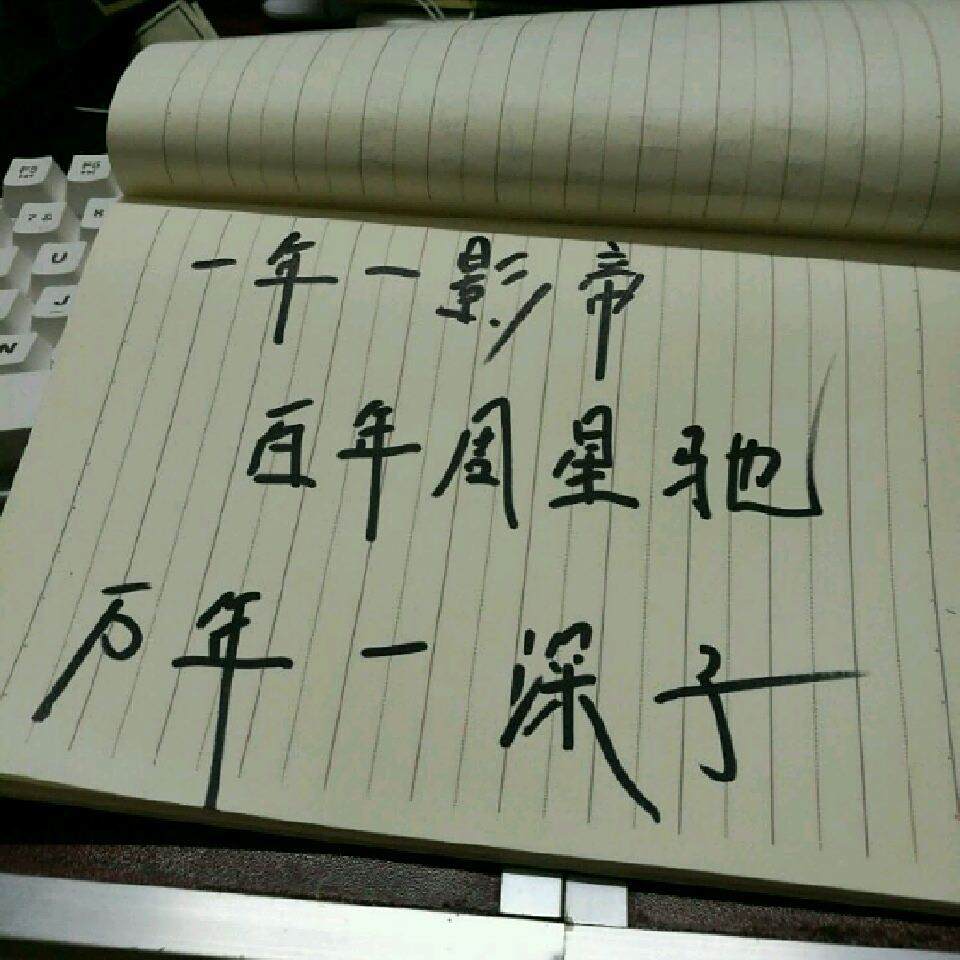 一年一影帝
百年周星驰
万年一深子
U
J
N